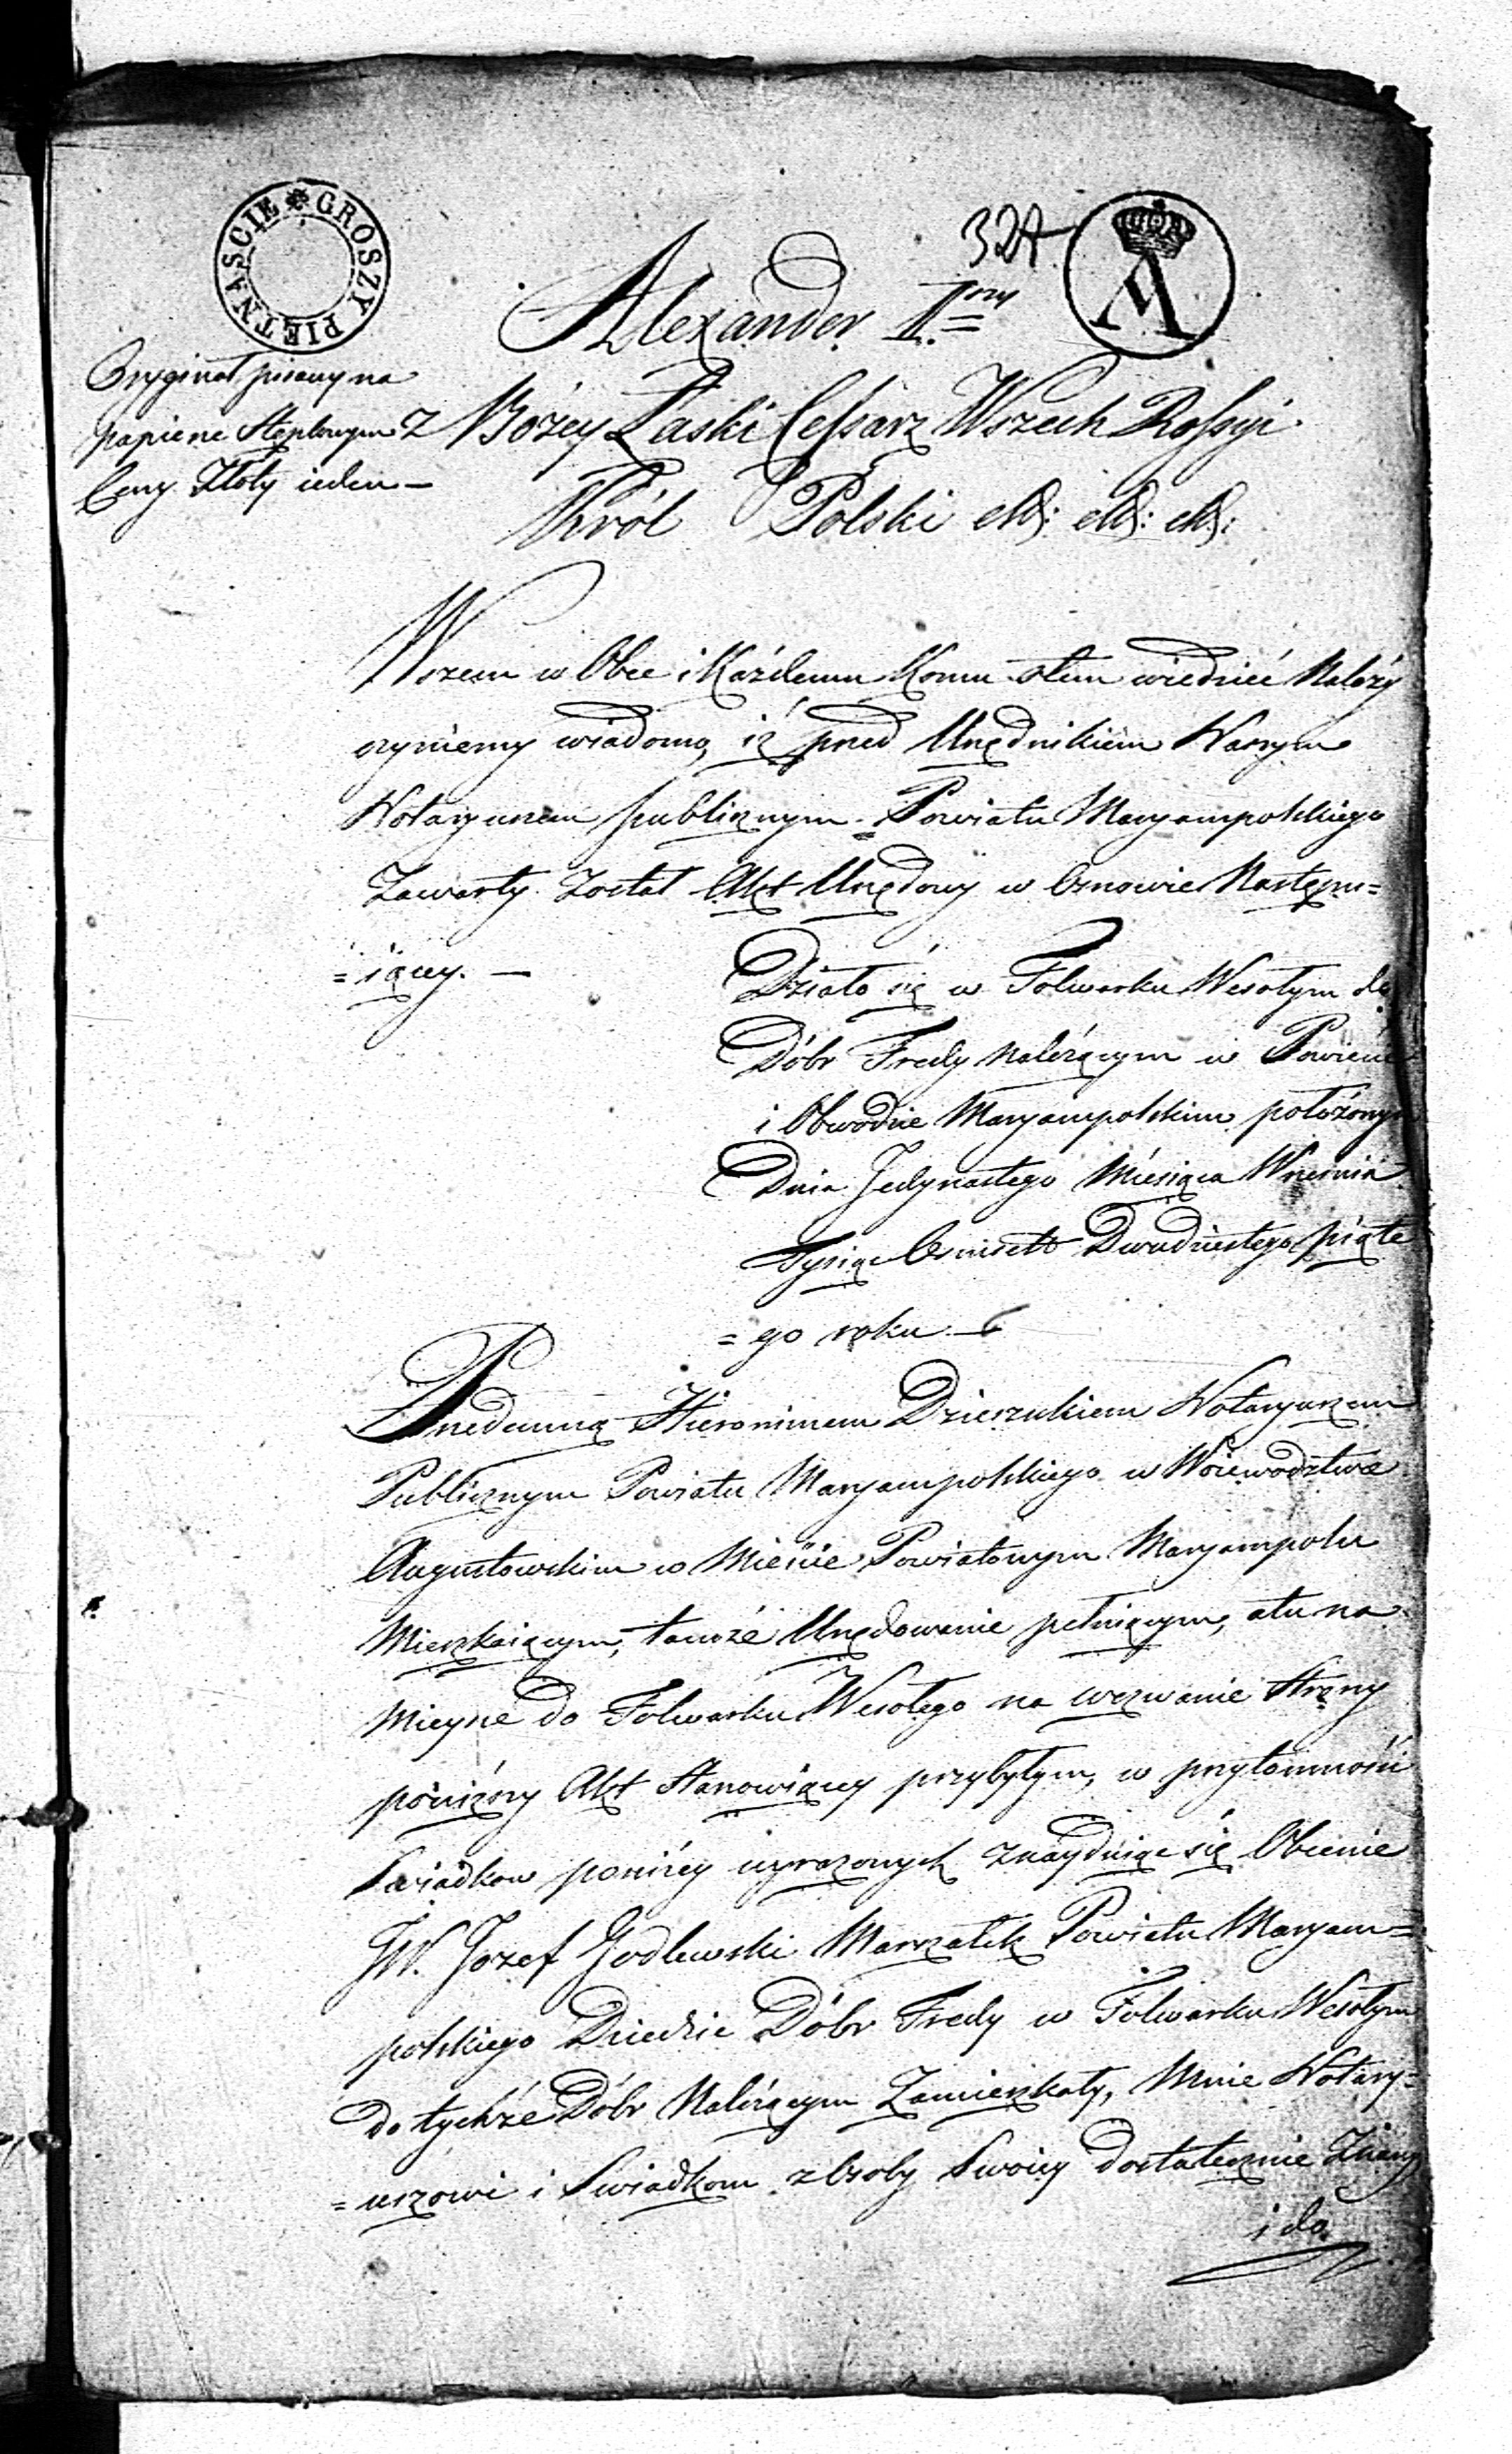 GROSZY PIĘTNAŚCIE
324
A
Alexander Iszy
Oryginał pisany na
papierze Stęplowym
Ceny Złoty ieden —
Z Bożey Łaski Cesarz Wszech Rossyi
Król Polski etc: etc: etc:
Wszem w Obec i Każdemu Komu o tem wiedzieć Należy
czyniemy wiadomo, iż przed Urzędnikiem Naszym
Notaryuszem publicznym Powiatu Maryampolskiego
Zawarty Został Akt Urzędowy w Osnowie Następu=
=iącey. —
Działo się w Folwarku Wesołym do
Dóbr Fredy należącym w Powiecie
i Obwodzie Maryampolskim położonym
Dnia Jedynastego Miesiąca Września
Tysiąc Ośmset Dwudziestego piąte
=go roku. —
Przedemną Hieronimem Dzieszukiem Notaryuszem
Publicznym Powiatu Maryampolskiego w Woiewodztwie
Augustowskim w Mieście Powiatowym Maryampolu
Mieszkaiącym, tamże Urzędowanie pełniącym, a tu na
Mieysce do Folwarku Wesołego na wezwanie Strony
poniższy Akt Stanowiącey przybyłym, w przytomności
Swiadkow poniżey wyrażonych znayduiąc się Obecnie
JW. Jozef Godlewski Marszałek Powiatu Maryam=
polskiego Dziedzic Dóbr Fredy w Folwarku Wesołym
do tychże Dóbr Należącym Zamieszkały, Mnie Notary=
=uszowi i Swiadkom z Osoby Swoiey dostatecznie Znany
i do